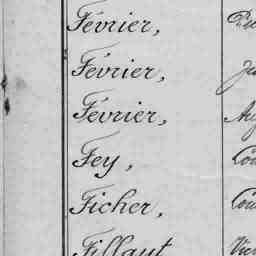 Février,
Février,
Février,
Fey,
Ficher,
Fillaut